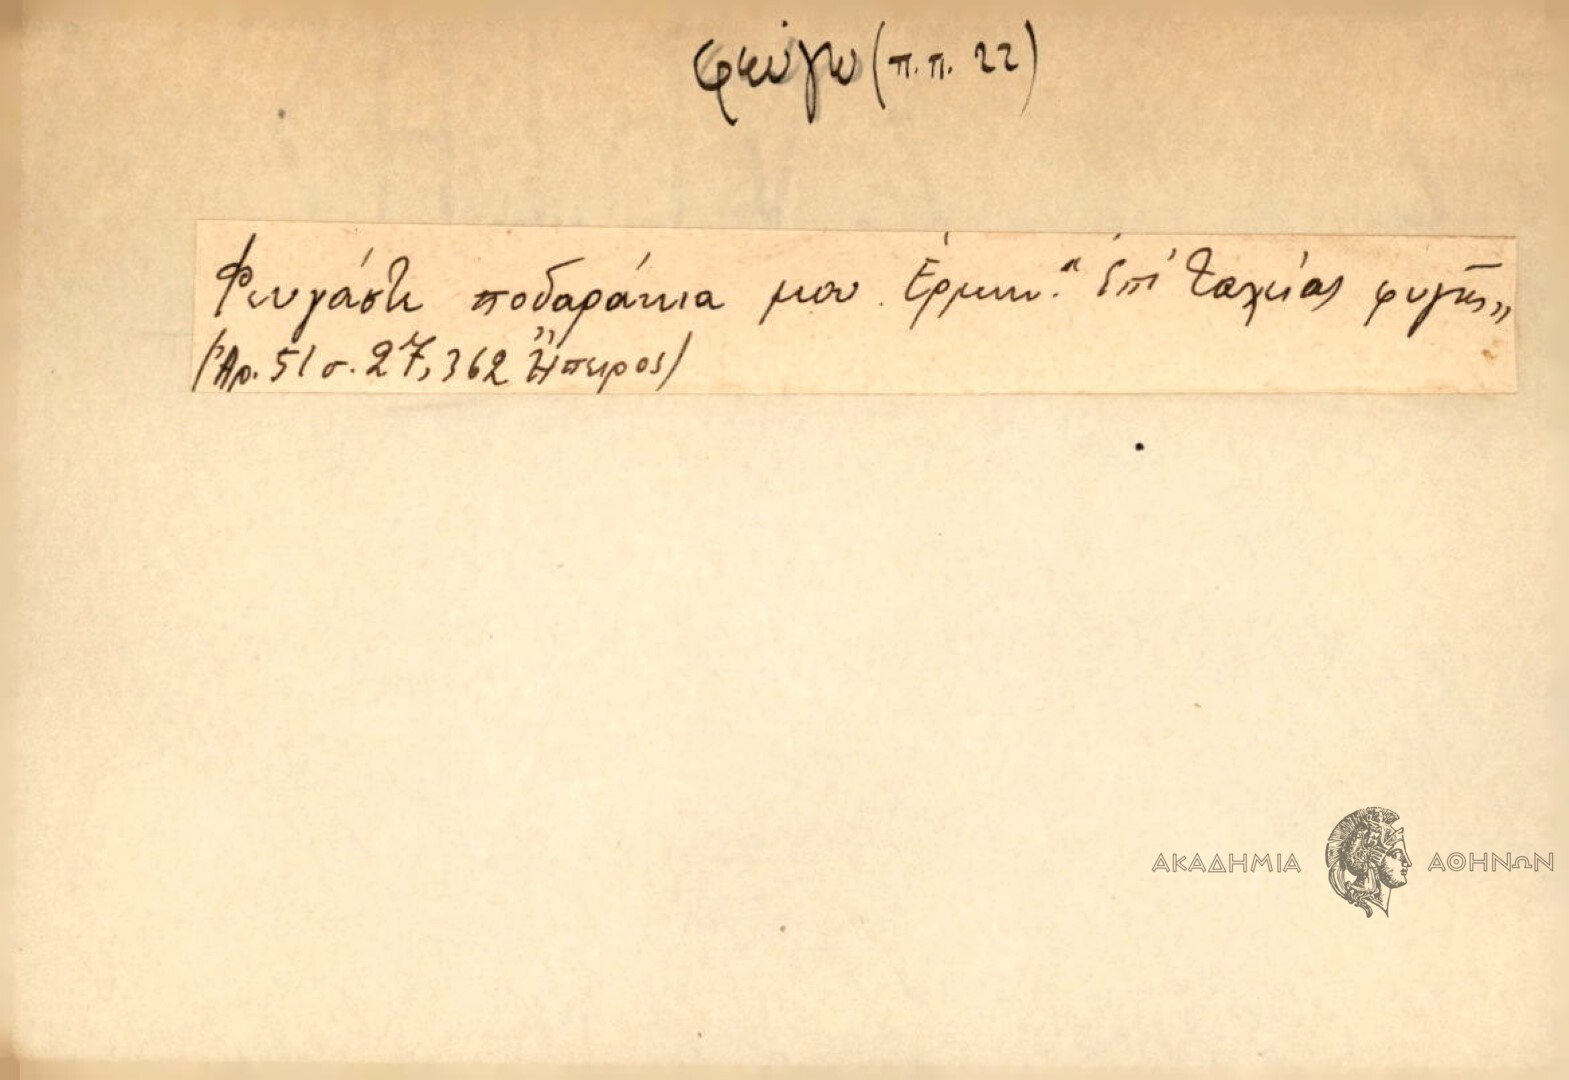 φεύγω (π.π. 22)
Φευγάστε ποδαράκια μου. Ἑρμην. "ἐπὶ ταχείας φυγῆς„
(Ἀρ. 51 σ. 27, 362 Ἤπειρος)
ΑΚΑΔΗΜΙΑ ΑΘΗΝΩΝ